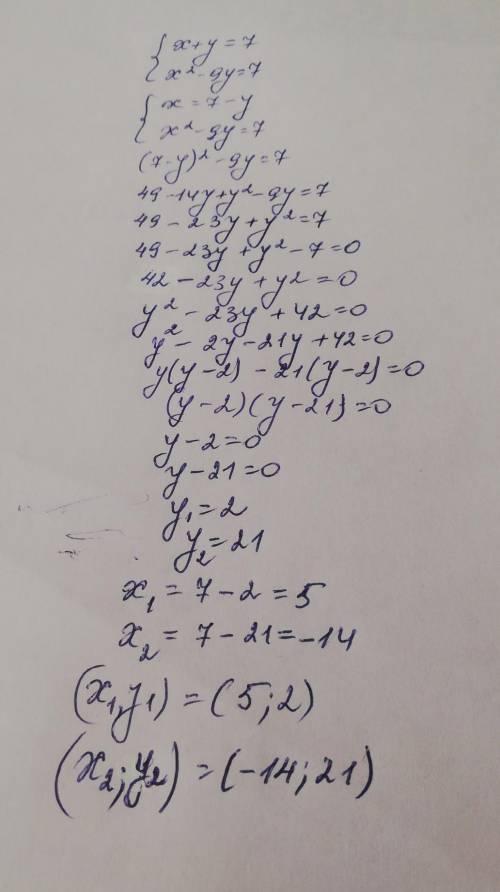 { x+y=7
x²-9y=7
{ x=7-y
x²-9y=7
(7-y)²-9y=7
49-14y+y²-9y=7
49-23y+y²=7
49-23y+y²-7=0
42-23y+y²=0
y²-23y+42=0
y²-2y-21y+42=0
y(y-2)-21(y-2)=0
(y-2)(y-21)=0
y-2=0
y-21=0
y₁=2
y₂=21
x₁=7-2=5
x₂=7-21=-14
(x₁,y₁)=(5;2)
(x₂;y₂)=(-14;21)